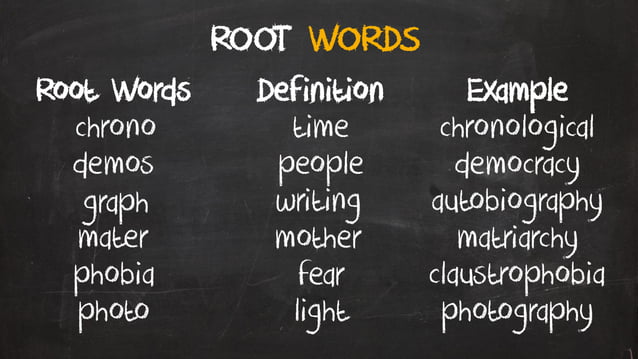 ROOT WORDS
Root Words Definition Example
chrono time chronological
demos people democracy
graph writing autobiography
mater mother matriarchy
phobia fear claustrophobia
photo light photography